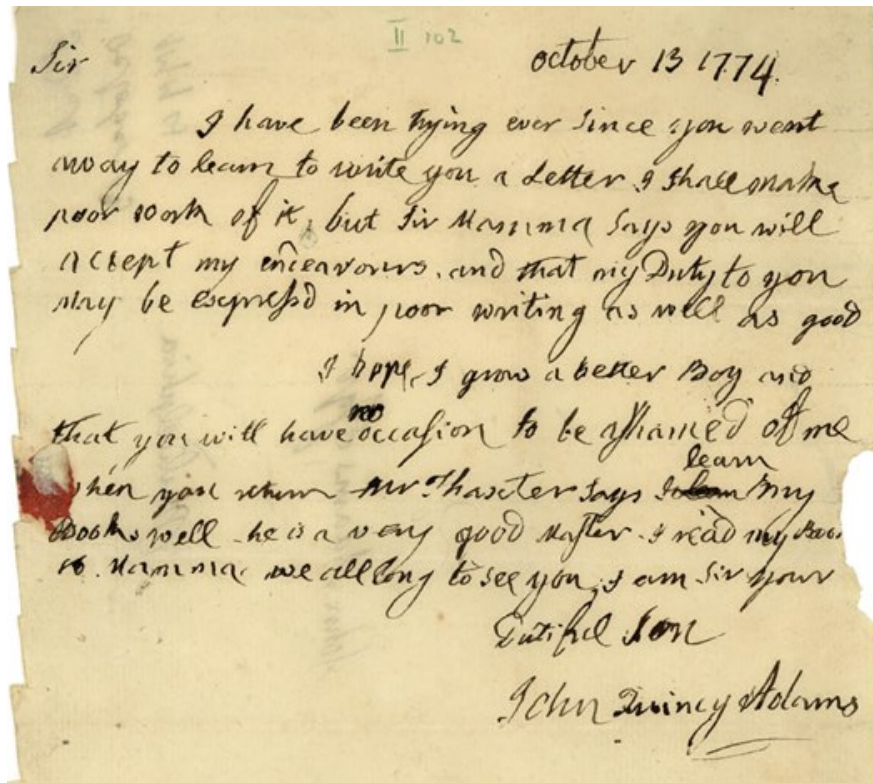 II 102
Sir october 13 1774.
I have been trying ever since you went
away to learn to write you a Letter I shall make
poor work of it, but Sir Mamma says you will
accept my endeavours, and that my Duty to you
may be expressd in poor writing as well as good
I hope I grow a better Boy and
that you will have no occasion to be ashamed of me
when you return Mr Thaxter says I learn my
Books well - he is a very good Master. I read my Books
to Mamma. we all long to see you I am Sir your
Dutiful Son
John Quincy Adams